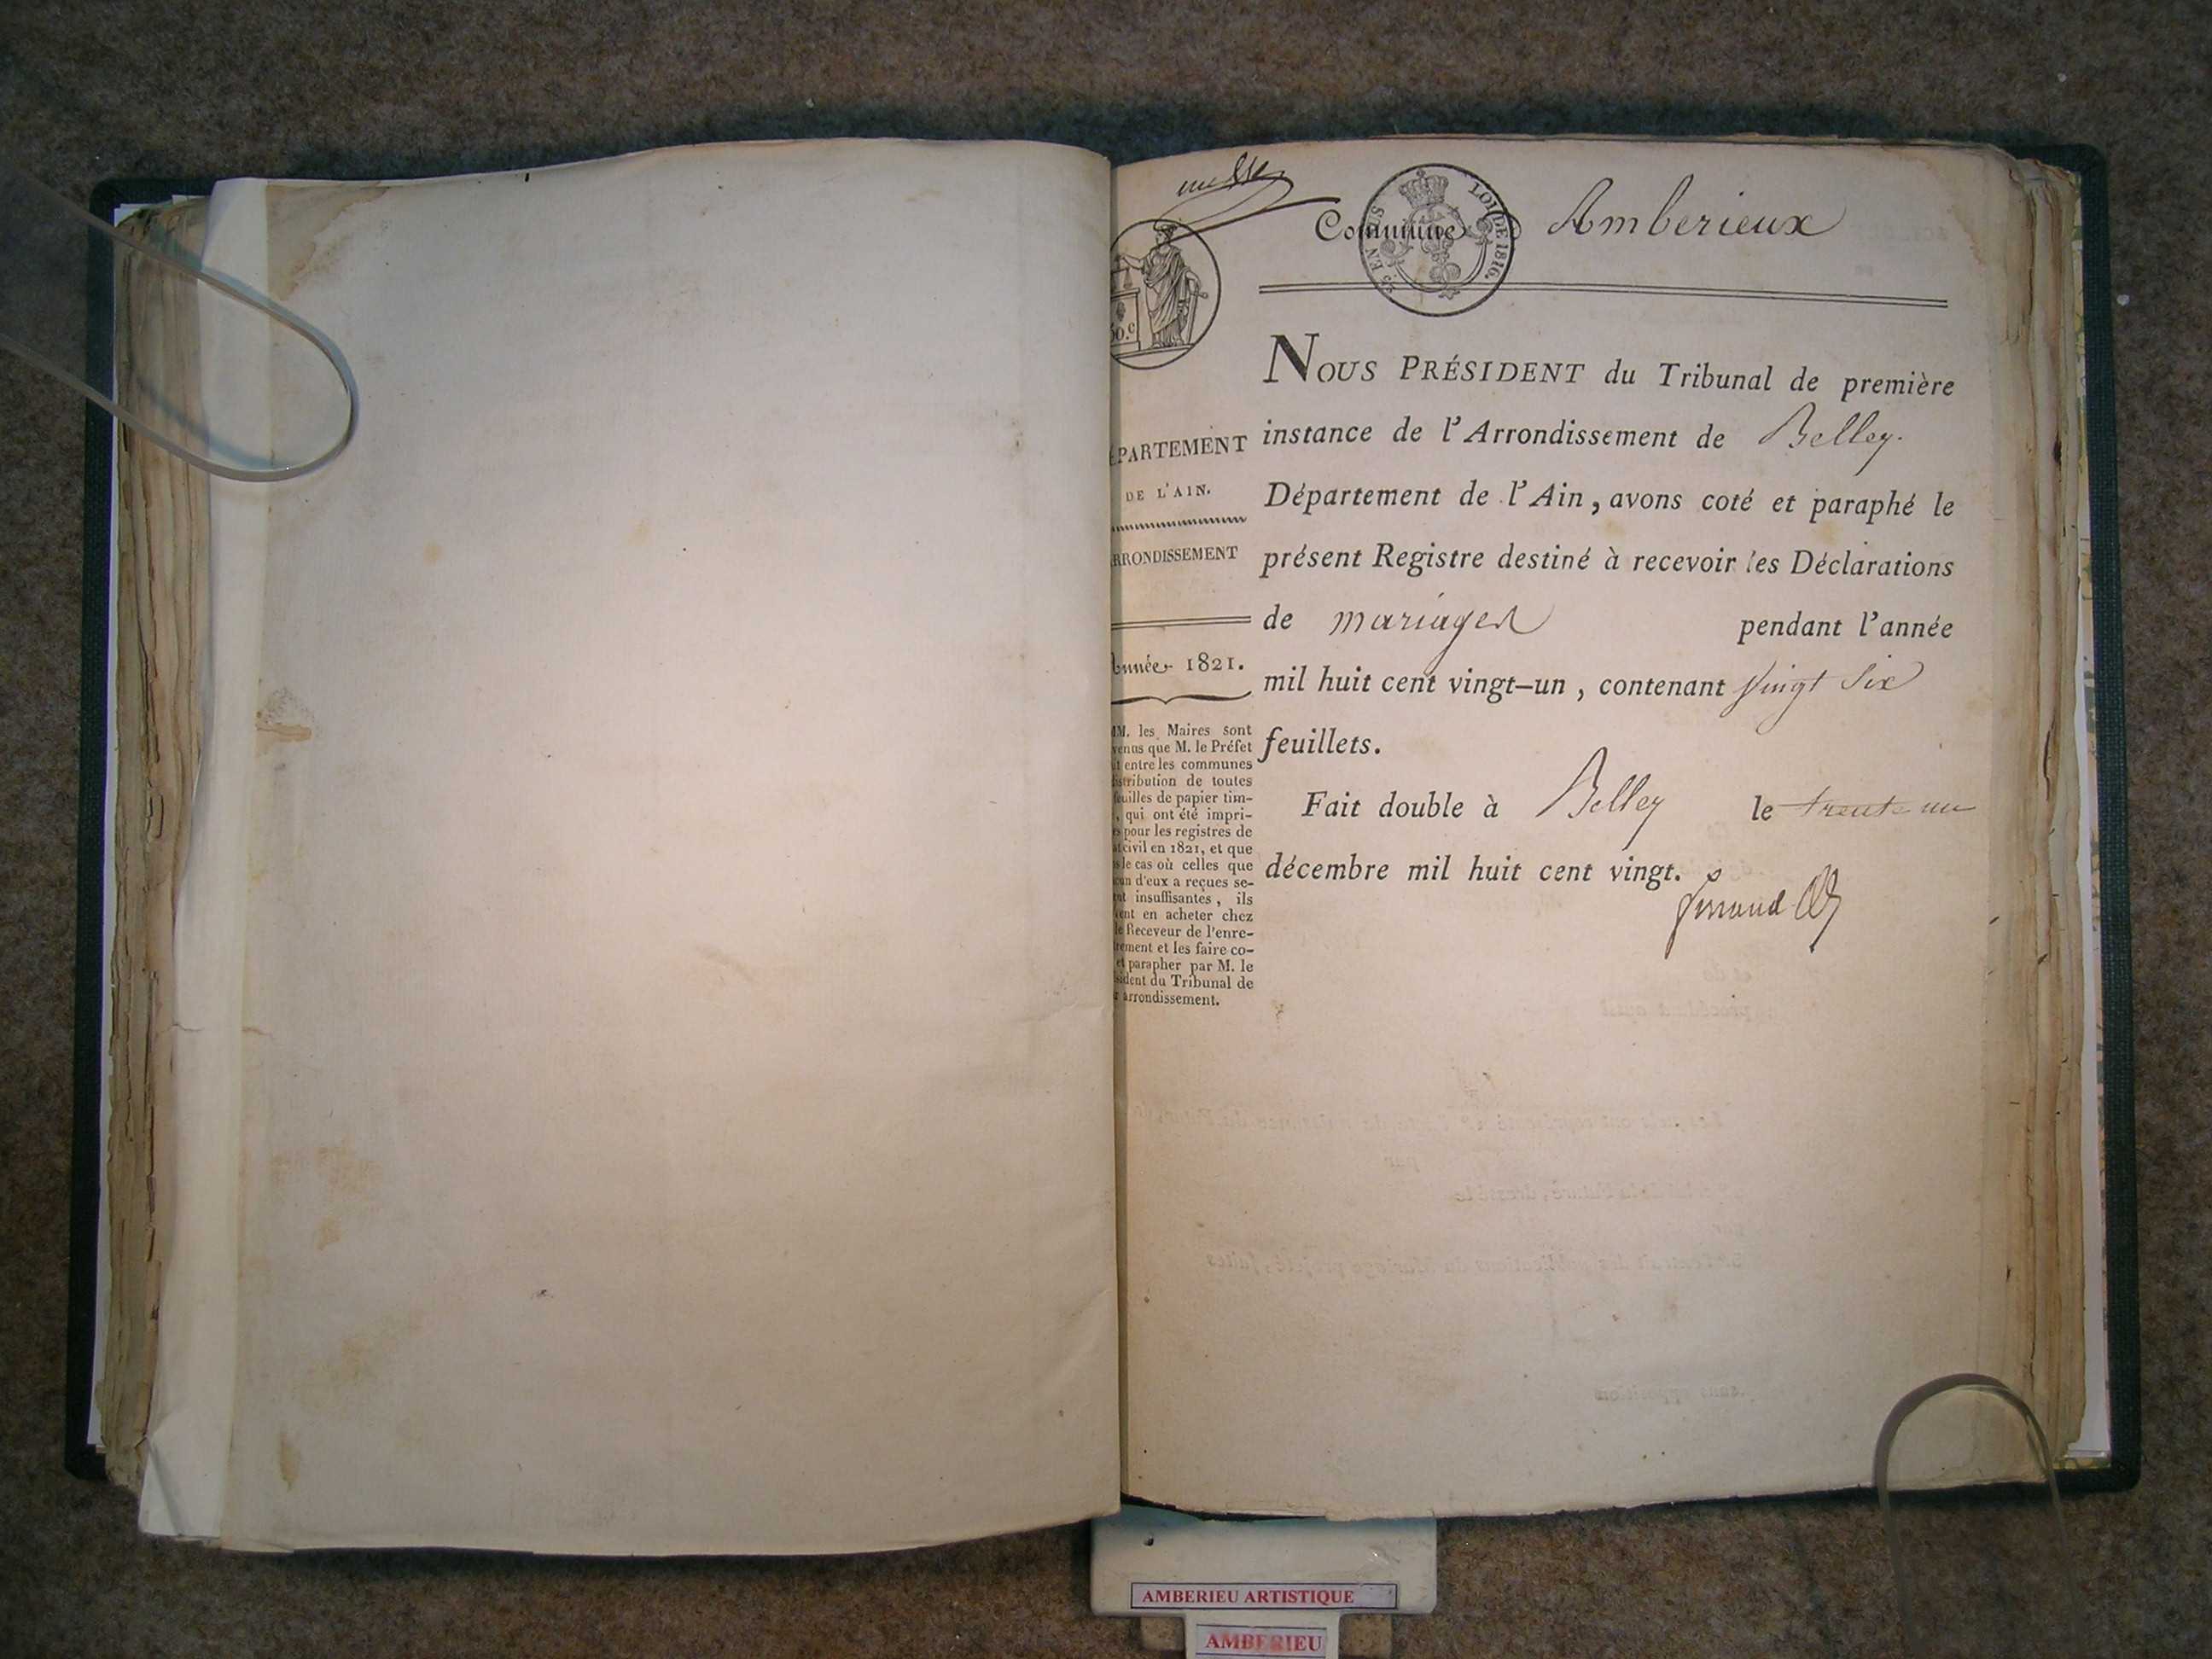 Commune d Amberieux
LOI DE 1816.
EN SUS
50.c
NOUS PRÉSIDENT du Tribunal de première
instance de l'Arrondissement de Belley.
Département de l'Ain, avons coté et paraphé le
présent Registre destiné à recevoir les Déclarations
de mariages pendant l'année
mil huit cent vingt-un, contenant vingt six
feuillets.
Fait double à Belley le trente un
décembre mil huit cent vingt.
PARTEMENT
DE L'AIN.
RRONDISSEMENT
Année 1821.
M. les Maires sont
venus que M. le Préfet
entre les communes
stribution de toutes
feuilles de papier tim-
, qui ont été impri-
pour les registres de
civil en 1821, et que
le cas où celles que
d'eux a reçues se-
insuffisantes, ils
en acheter chez
le Receveur de l'enre-
rement et les faire co-
et parapher par M. le
sident du Tribunal de
arrondissement.
AMBERIEU ARTISTIQUE
AMBERIEU